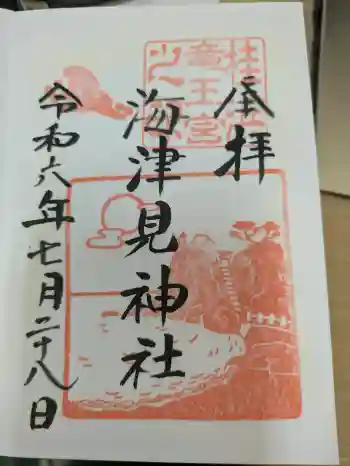 奉拝
海津見神社
令和六年七月二十八日
竜王宮